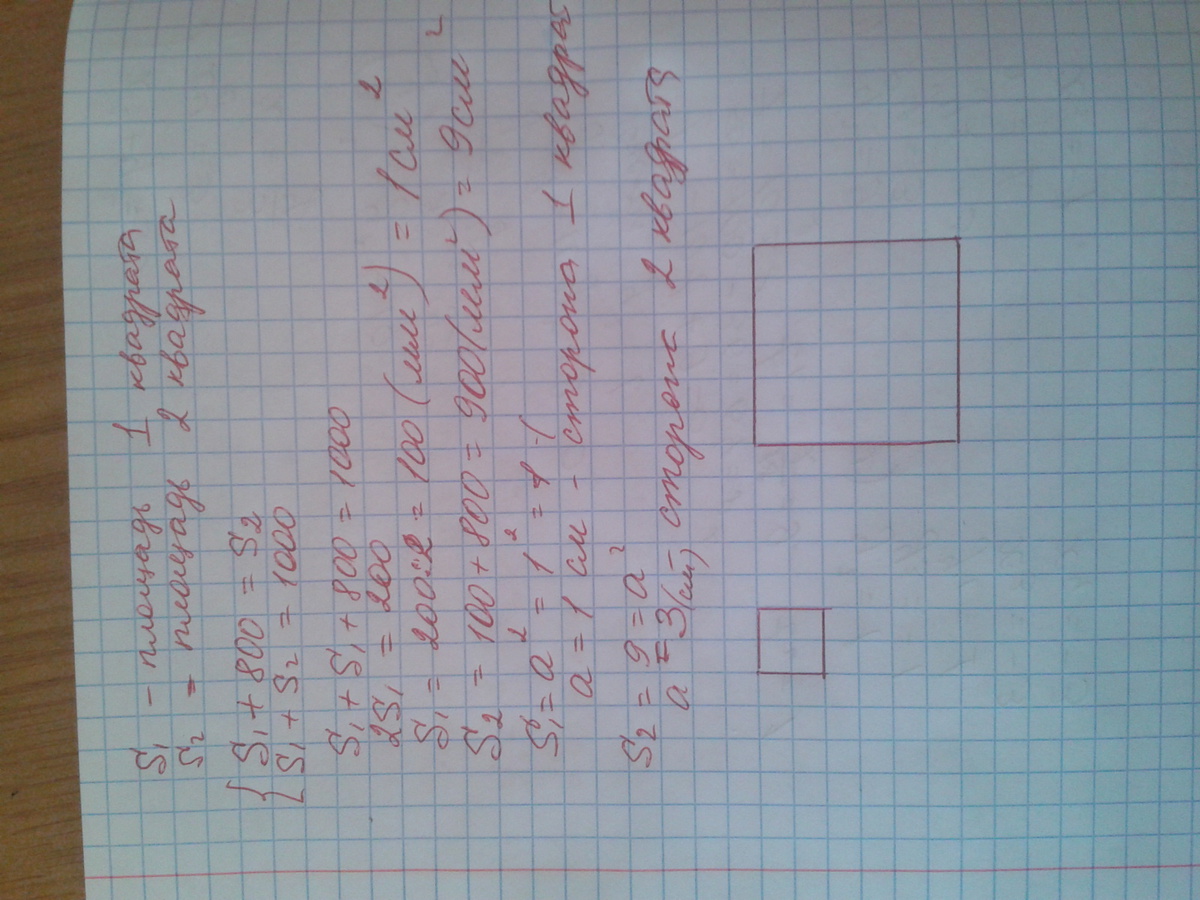 S₁ – площадь 1 квадрата
S₂ – площадь 2 квадрата
{ S₁ + 800 = S₂
S₁ + S₂ = 1000
S₁ + S₁ + 800 = 1000
2S₁ = 200
S₁ = 200:2 = 100 (мм²) = 1 см²
S₂ = 100 + 800 = 900 (мм²) = 9 см²
S₁ = a² = 1² = 1 · 1
a = 1 см – сторона 1 квадрат
S₂ = 9 = a²
a = 3 (см) сторона 2 квадрата